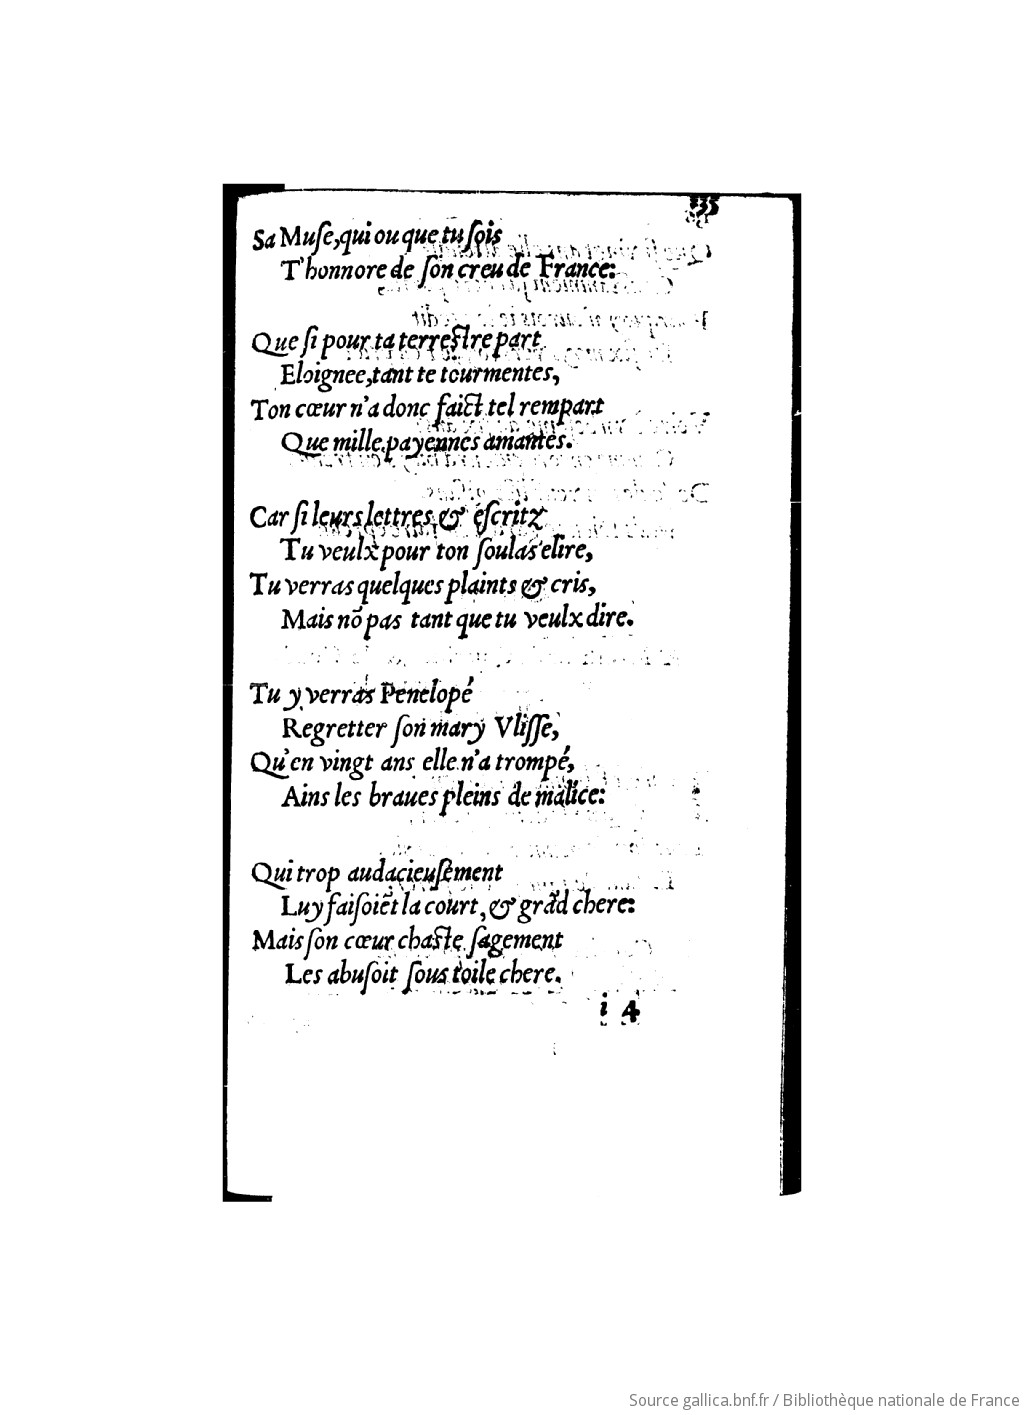 Sa Muſe,qui ou que tu ſois
T'honnore de ſon creu de France:
Que ſi pour ta terreſtre part
Eloignee,tant te tourmentes,
Ton cœur n'a donc faict tel rempart
Que mille payennes amantes.
Car ſi leurs lettres & eſcritz
Tu veulx pour ton ſoulas elire,
Tu verras quelques plaints & cris,
Mais nõ pas tant que tu veulx dire.
Tu y verras Penelopé
Regretter ſon mary Vliſſe,
Qu'en vingt ans elle n'a trompé,
Ains les braues pleins de malice:
Qui trop audacieuſement
Luy faiſoiẽt la court, & grãd chere:
Mais ſon cœur chaſte ſagement
Les abuſoit ſous toile chere.
i 4
Source gallica.bnf.fr / Bibliothèque nationale de France